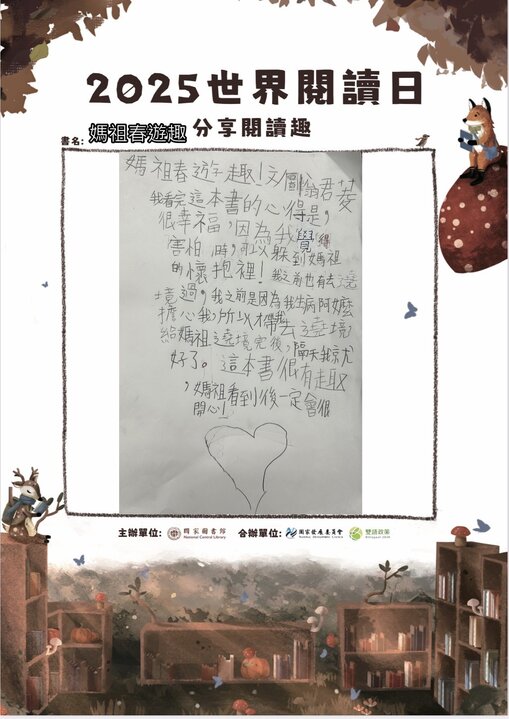 2025世界閱讀日
書名: 媽祖春遊趣 分享閱讀趣
媽祖春遊趣!文/圖翁君菱
我看完這本書的心得是,
很幸福,因為我覺得
害怕時,可以躲到媽祖
的懷抱裡!我之前也有去遶
境過,我之前是因為我生病阿嬤
擔心我,所以才帶我去遶境
給媽祖遶境完後,隔天我就
好了。這本書很有趣
,媽祖看到後一定會很
開心!
主辦單位: 國家圖書館 National Central Library 合辦單位: 國家發展委員會 National Development Council 雙語政策 Bilingual 2030